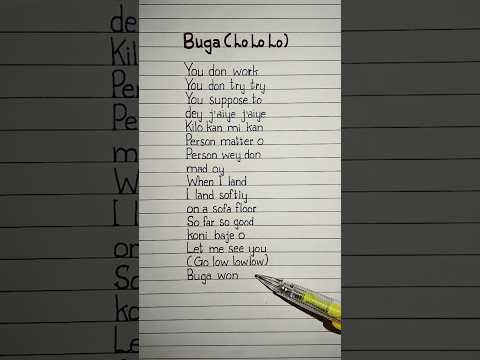 Buga (Lo Lo Lo)
You don work
You don try try
You suppose to
dey j'aiye j'aiye
Kilo kan mi kan
Person matter o
Person wey don
mad oy
When I land
I land softly
on a sofa floor
So far so good
koni baje o
Let me see you
(Go low lowlow)
Buga won